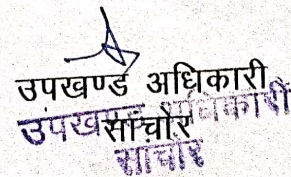 उपखण्ड अधिकारी
सांचौर
उपखण्ड अधिकारी
सांचोर